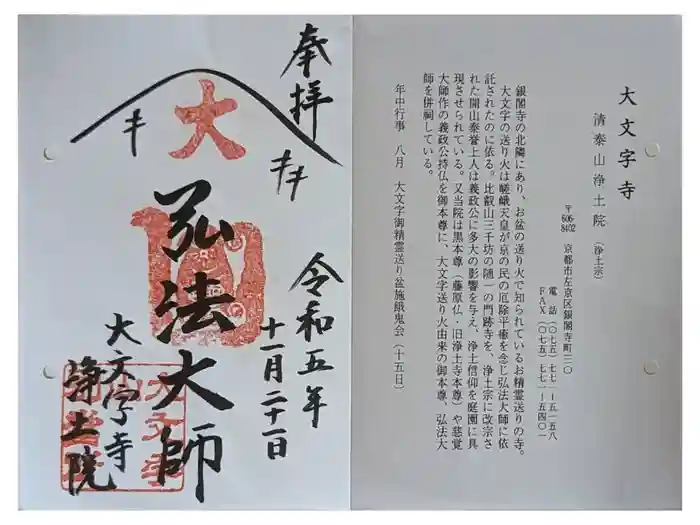 大文字寺
清泰山浄土院（浄土宗）
〒606-8402 京都市左京区銀閣寺町三〇
電話（〇七五）七七一－五一五八
FAX（〇七五）七七一－五四〇一
銀閣寺の北隣にあり、お盆の送り火で知られているお精霊送りの寺。
大文字の送り火は嵯峨天皇が京の民の厄除平癒を念じ弘法大師に依
託されたのに依る。比叡山三千坊の随一の門跡寺を、浄土宗に改宗さ
れた開山泰誉上人は義政公に多大の影響を与え、浄土信仰を庭園に具
現させられている。又当院は黒本尊（藤原仏・旧浄土寺本尊）や慈覚
大師作の義政公持仏を御本尊に、大文字送り火由来の御本尊、弘法大
師を併祠している。
年中行事　八月　大文字御精霊送り盆施餓鬼会（十五日）
奉拝
大
弘法大師
令和五年
十一月二十一日
大文字寺
浄土院